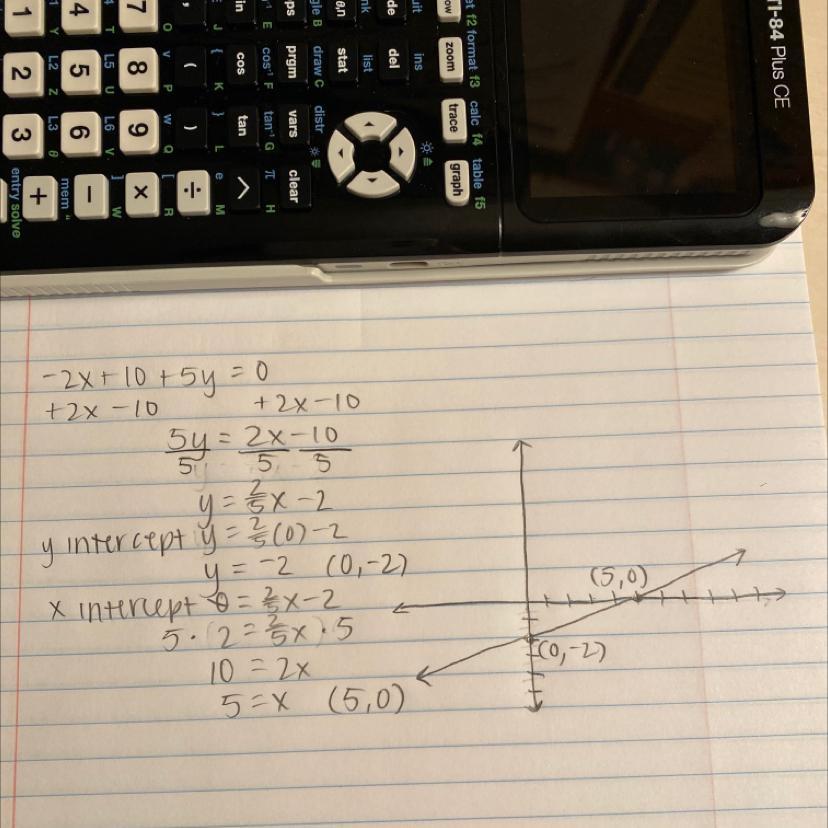 TI-84 Plus CE
f2 format f3 calc f4 table f5
zoom trace graph
ins
del
list
stat
draw C distr
prgm vars clear
cos⁻¹ F tan⁻¹ G π H
cos tan ^
{ K } L e M
( ) ÷
v P w Q [ R
7 8 9 ×
L5 U L6 V ] W
4 5 6 −
L2 Z L3 θ mem "
1 2 3 +
entry solve
-2x + 10 + 5y = 0
+2x - 10 +2x - 10
5y = 2x - 10
5 5 5
y = 2/5 x - 2
y intercept y = 2/5 (0) - 2
y = -2 (0,-2)
x intercept 0 = 2/5 x - 2
5 · (2 = 2/5 x) · 5
10 = 2x
5 = x (5,0)
(5,0)
(0,-2)